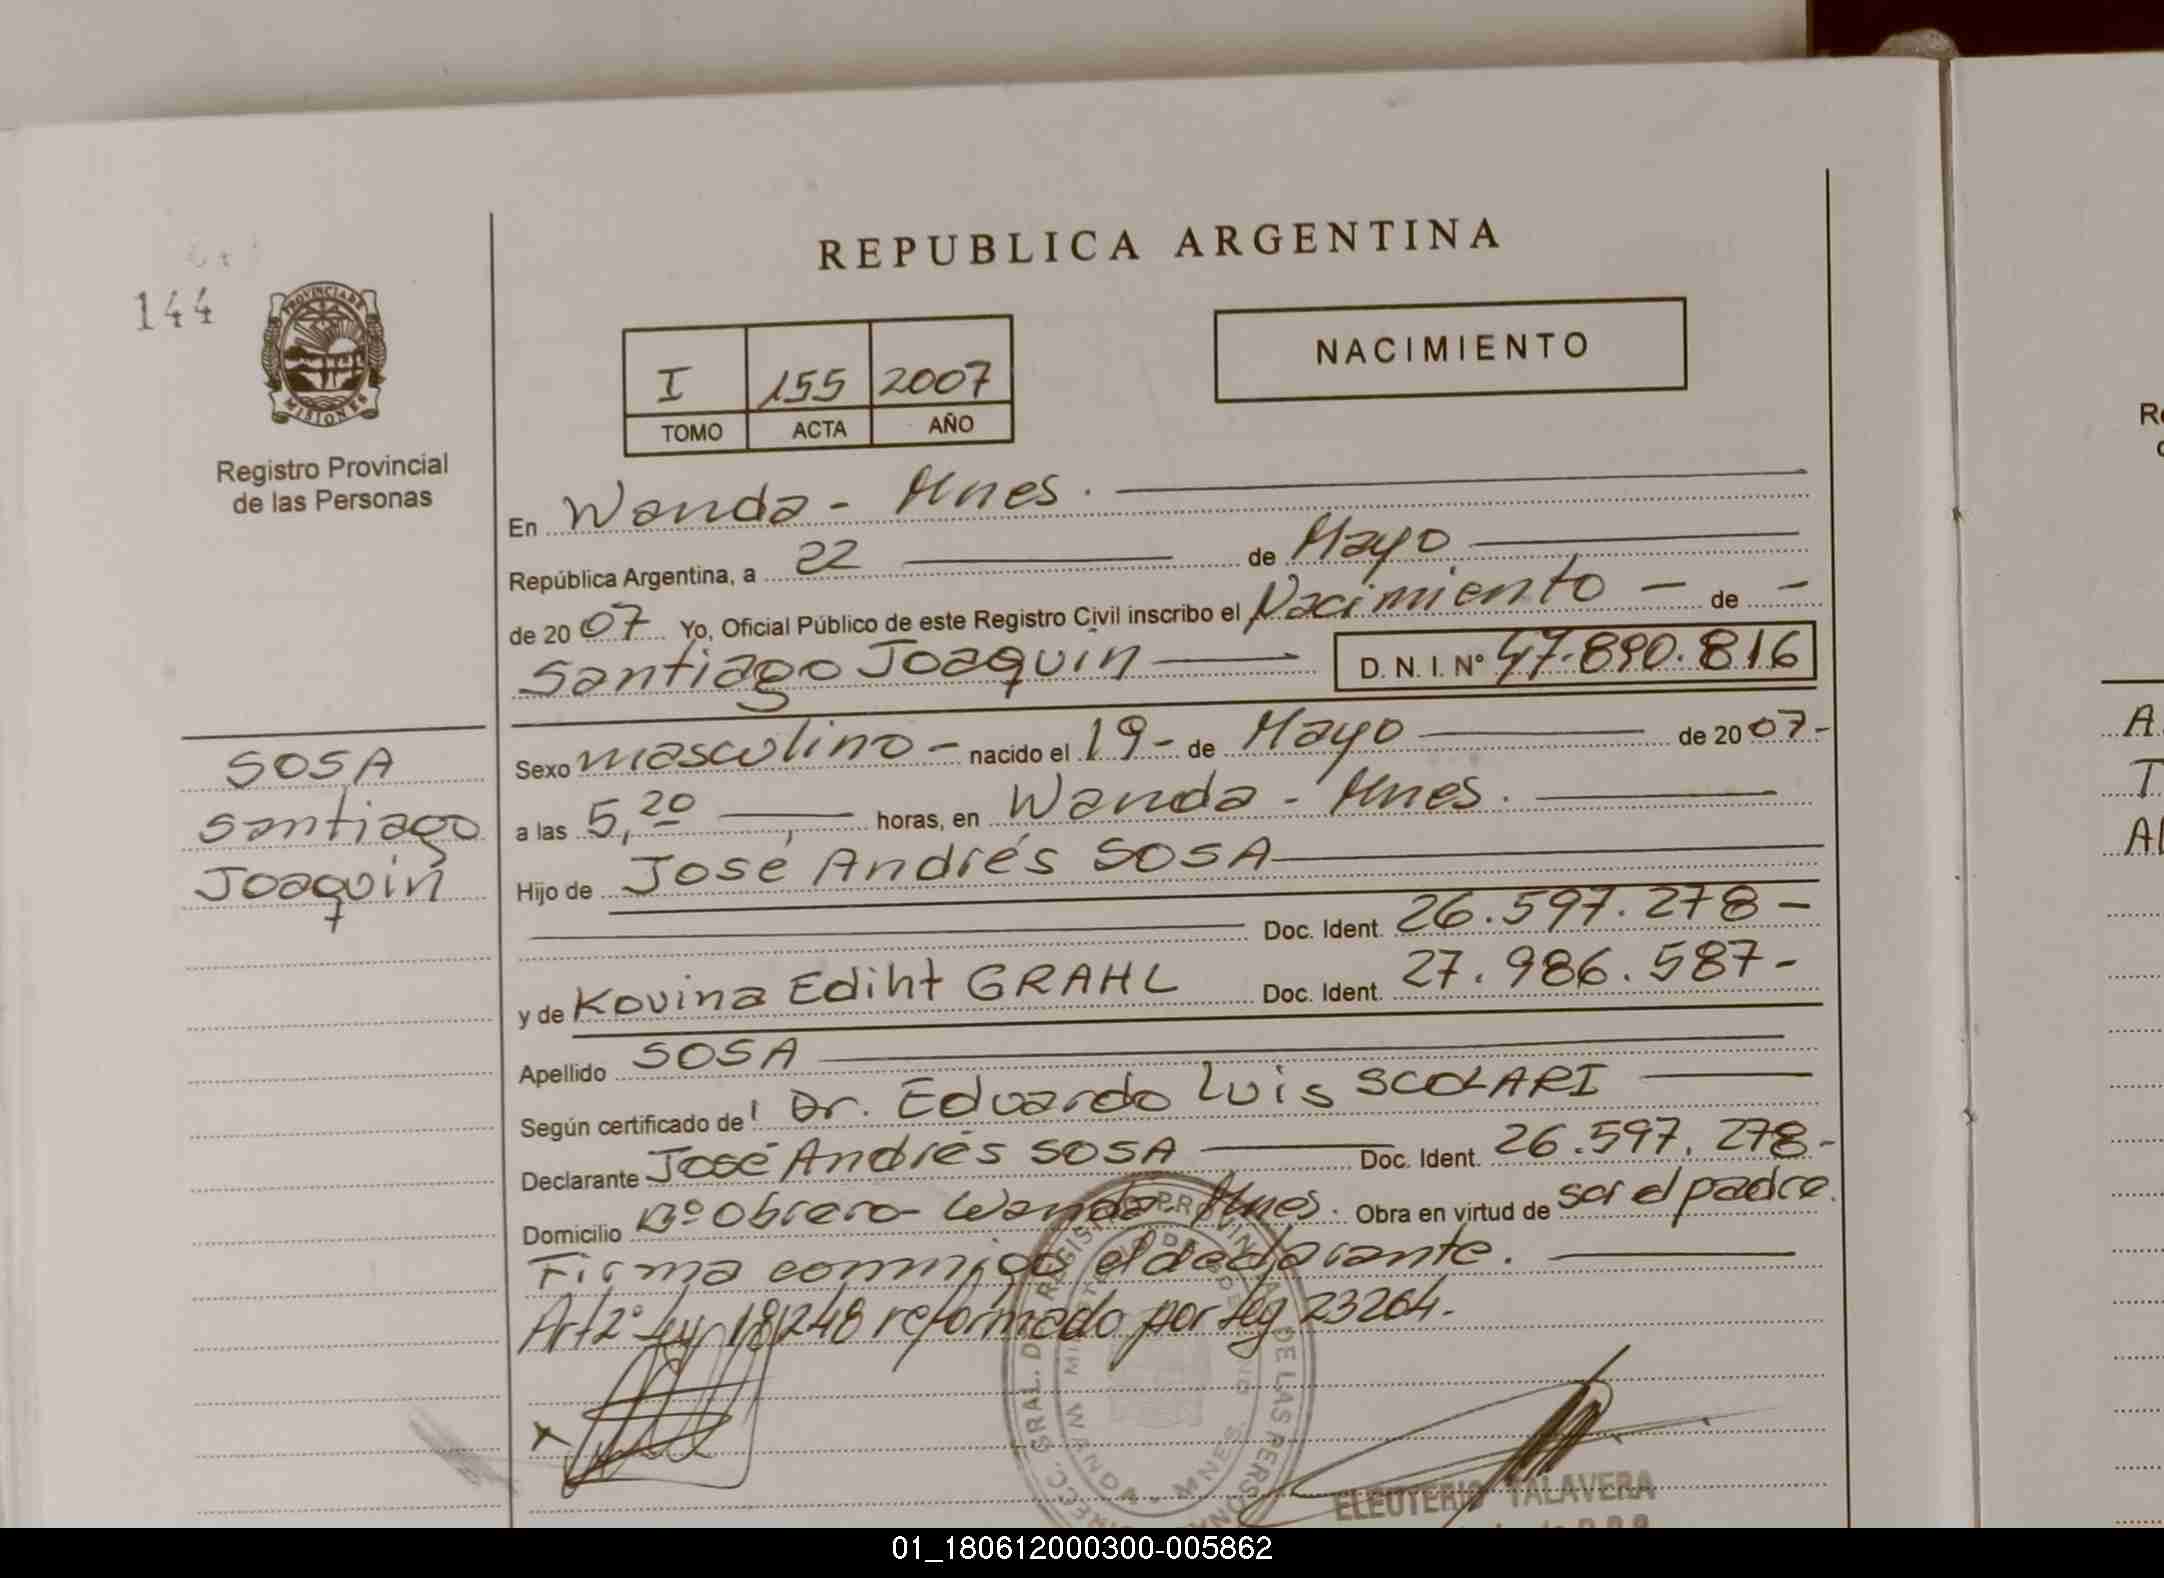 REPUBLICA ARGENTINA
144
PROVINCIA DE
MISIONES
Registro Provincial
de las Personas
I 155 2007
TOMO ACTA AÑO
NACIMIENTO
En Wanda - Mnes.
República Argentina, a 22 de Mayo
de 2007 Yo, Oficial Público de este Registro Civil inscribo el Nacimiento - de -
Santiago Joaquin D. N. I. N° 47.890.816
SOSA
Santiago
Joaquin
Sexo masculino - nacido el 19 - de Mayo de 2007 -
a las 5,20 horas, en Wanda - Mnes.
Hijo de José Andrés SOSA
Doc. Ident. 26.597.278 -
y de Kovina Ediht GRAHL Doc. Ident. 27.986.587 -
Apellido SOSA
Según certificado del Dr. Eduardo Luis SCOLARI
Declarante José Andrés SOSA Doc. Ident. 26.597.278 -
Domicilio Bº Obrero - Wanda - Mnes. Obra en virtud de ser el padre.
Firma conmigo el declarante.
Art 2º Ley 18248 reformado por Ley 23264.
DIRECC. GRAL. DEL REGISTRO PROVINCIAL DE LAS PERSONAS
WANDA - MNES.
ELEUTERIO TALAVERA
A
T
Al
01_180612000300-005862